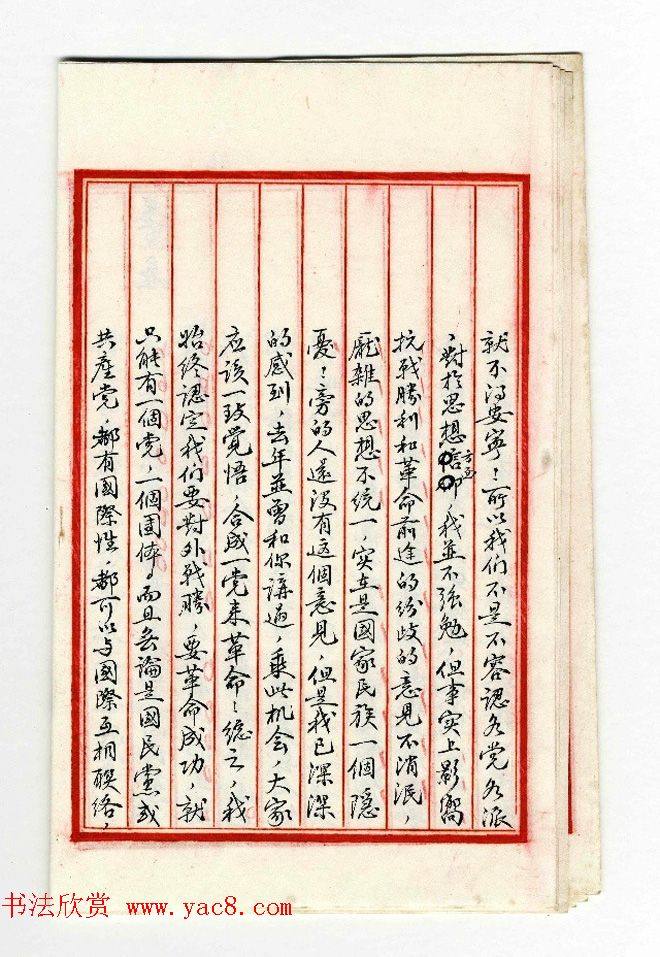 就不得安寧！所以我们不是不容認各党各派
，對於思想方面，我並不强勉，但事实上影嚮
抗战勝利和革命前途的纷歧的意見不消泯，
庞雜的思想不统一，实在是國家民族一個隱
憂！旁的人還没有这個意見，但是我已深深
的感到，去年並曾和你講過，乘此机会，大家
应该一致覺悟，合成一党来革命！總之，我
始终認定我们要對外战勝，要革命成功，就
只能有一個党，一個团体，而且無論是國民黨或
共產党，都有國際性，都可以与國際互相联络，
书法欣赏 www.yac8.com